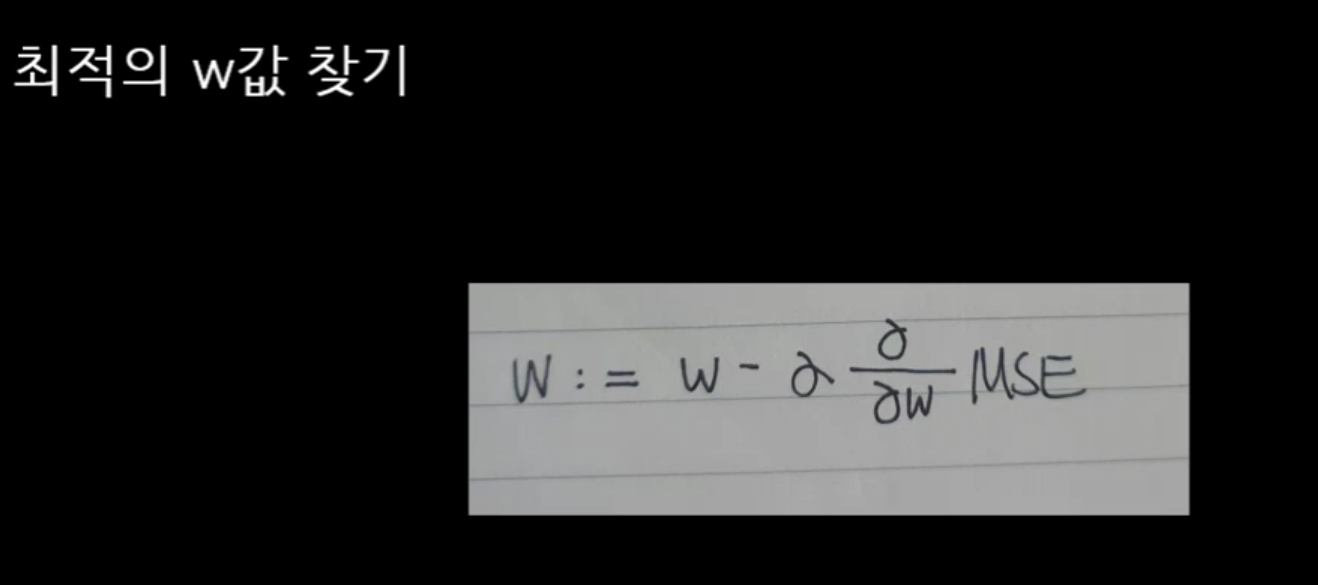 최적의 w값 찾기
W := W - α ∂/∂W MSE